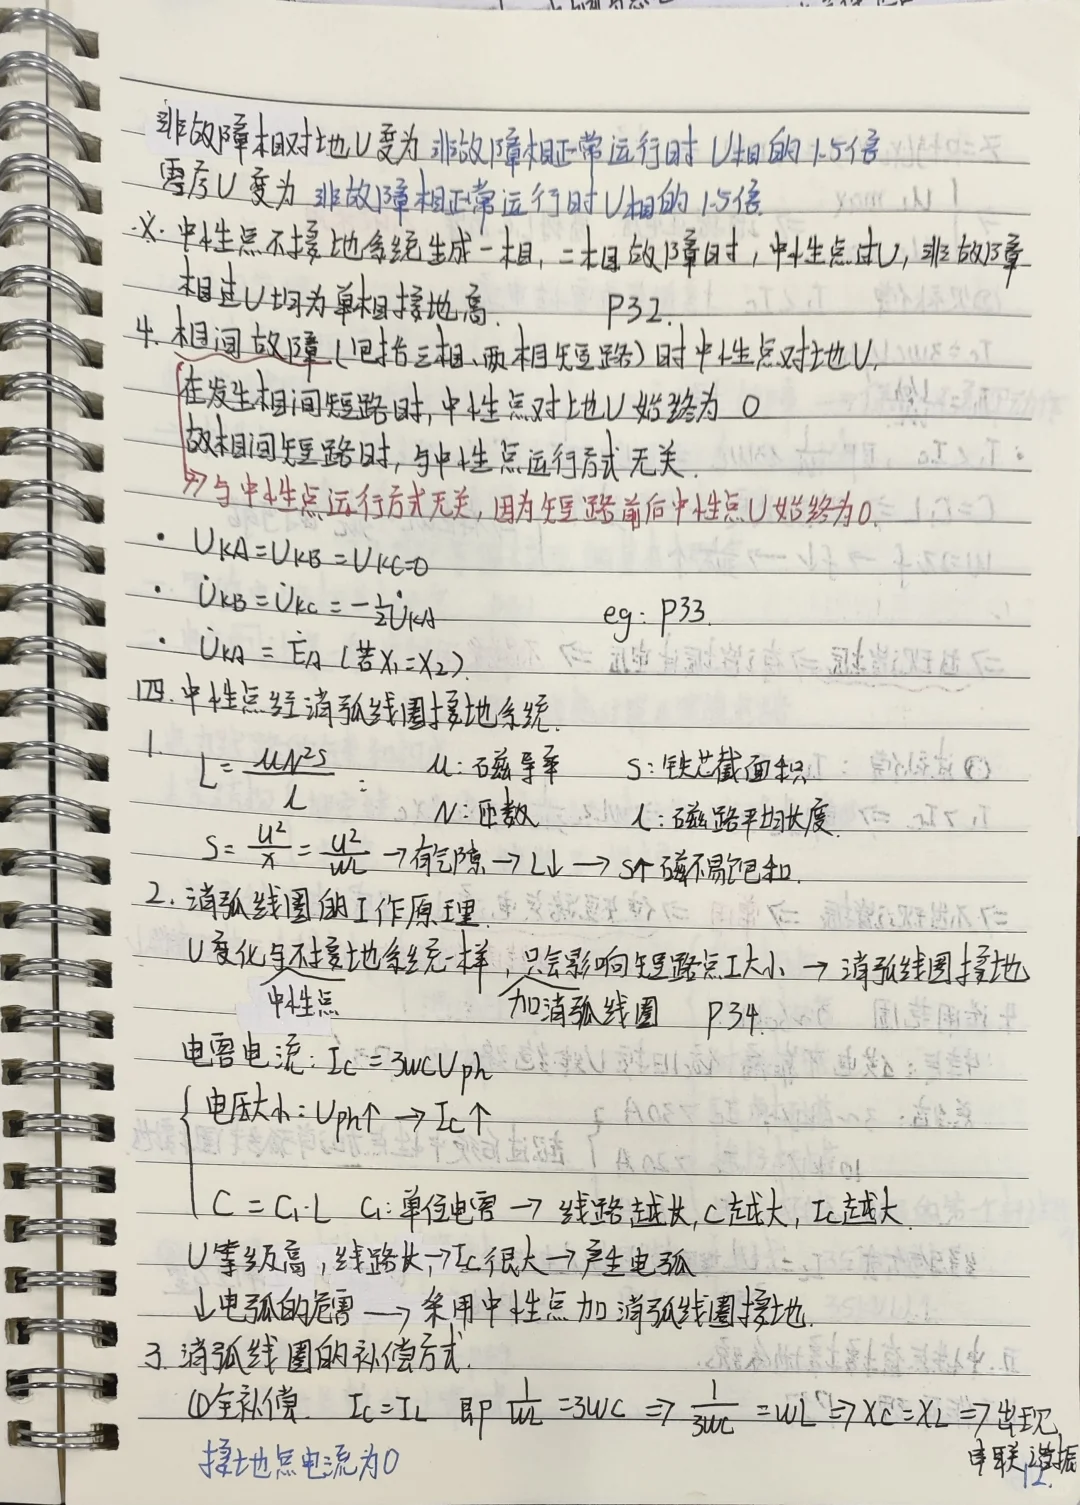 非故障相对地U变为 非故障相正常运行时 U相的1.5倍
零序U变为 非故障相正常运行时U相的1.5倍.
·※· 中性点不接地系统生成一相, 二相故障时, 中性点过U, 非故障
相过U均为单相接地高. P32.
4. 相间故障(包括三相、两相短路)时中性点对地U.
在发生相间短路时, 中性点对地U始终为 0
故相间短路时, 与中性点运行方式无关.
⇒ 与中性点运行方式无关, 因为短路前后中性点U始终为0.
• UKA=UKB=UKC=0
• U̇KB = U̇KC = -½U̇KA eg: P33.
• U̇KA = ĖA (若X₁=X₂).
四. 中性点经消弧线圈接地系统.
1. L = μN²S / l : μ: 磁导率 S: 铁芯截面积
N: 匝数 l: 磁路平均长度.
S = U²/X = U²/ωL → 有气隙 → L↓ → S↑ 磁不易饱和.
2. 消弧线圈的工作原理.
U变化与不接地系统一样, 只会影响短路点I大小 → 消弧线圈接地
中性点 加消弧线圈 P34.
电容电流: Ic = 3ωCUph
电压大小: Uph↑ → Ic↑
C = C₁·L C₁: 单位电容 → 线路越长, C越大, Ic越大.
U等级高, 线路长, → Ic很大 → 产生电弧
↓电弧的危害 → 采用中性点加消弧线圈接地.
3. 消弧线圈的补偿方式.
①全补偿. Ic=IL 即 1/ωL = 3ωC ⇒ 1/3ωC = ωL ⇒ XC=XL ⇒ 出现
串联谐振
接地点电流为0
12.